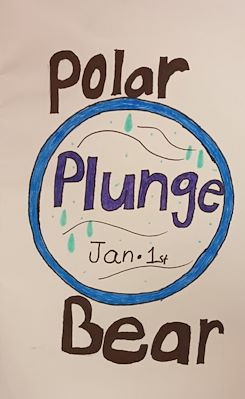 Polar
Plunge
Jan. 1st
Bear